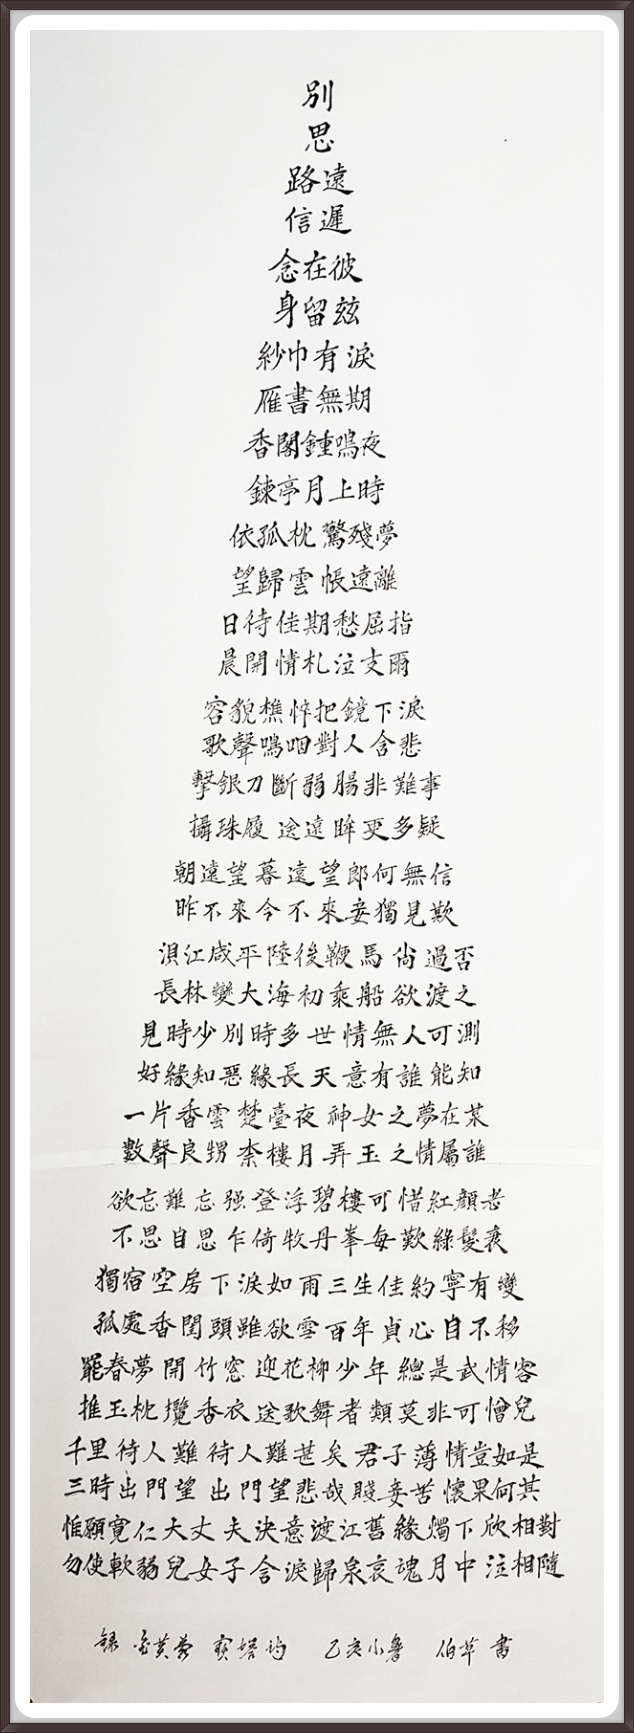 別
思
路遠
信遲
念在彼
身留玆
紗巾有淚
雁書無期
香閣鍾鳴夜
鍊亭月上時
依孤枕驚殘夢
望歸雲帳遠離
日待佳期愁屈指
晨開情札泣支爾
容貌憔悴把鏡下淚
歌聲嗚咽對人含悲
擊銀刀斷弱腸非難事
攝珠履送遠眸更多疑
朝遠望暮遠望郎何無信
昨不來今不來妾獨見欺
浿江成平陸後鞭馬尙過否
長林變大海初乘船欲渡之
見時少別時多世情無人可測
好緣知惡緣長天意有誰能知
一片香雲楚臺夜神女之夢在某
數聲良甥柰樓月弄玉之情屬誰
欲忘難忘强登浮碧樓可惜紅顏老
不思自思乍倚牧丹峯每歎綠髮衰
獨宿空房下淚如雨三生佳約寧有變
孤處香閨頭雖欲雪百年貞心自不移
罷春夢開竹窓迎花柳少年總是武情客
推玉枕攬香衣送歌舞者類莫非可憎兒
千里待人難待人難甚矣君子薄情豈如是
三時出門望出門望悲哉賤妾苦懷果何其
惟願寬仁大丈夫決意渡江舊緣燭下欣相對
勿使軟弱兒女子含淚歸泉哀魂月中泣相隨
錄 金芙蓉 寶塔詩 乙亥小暑 伯草 書